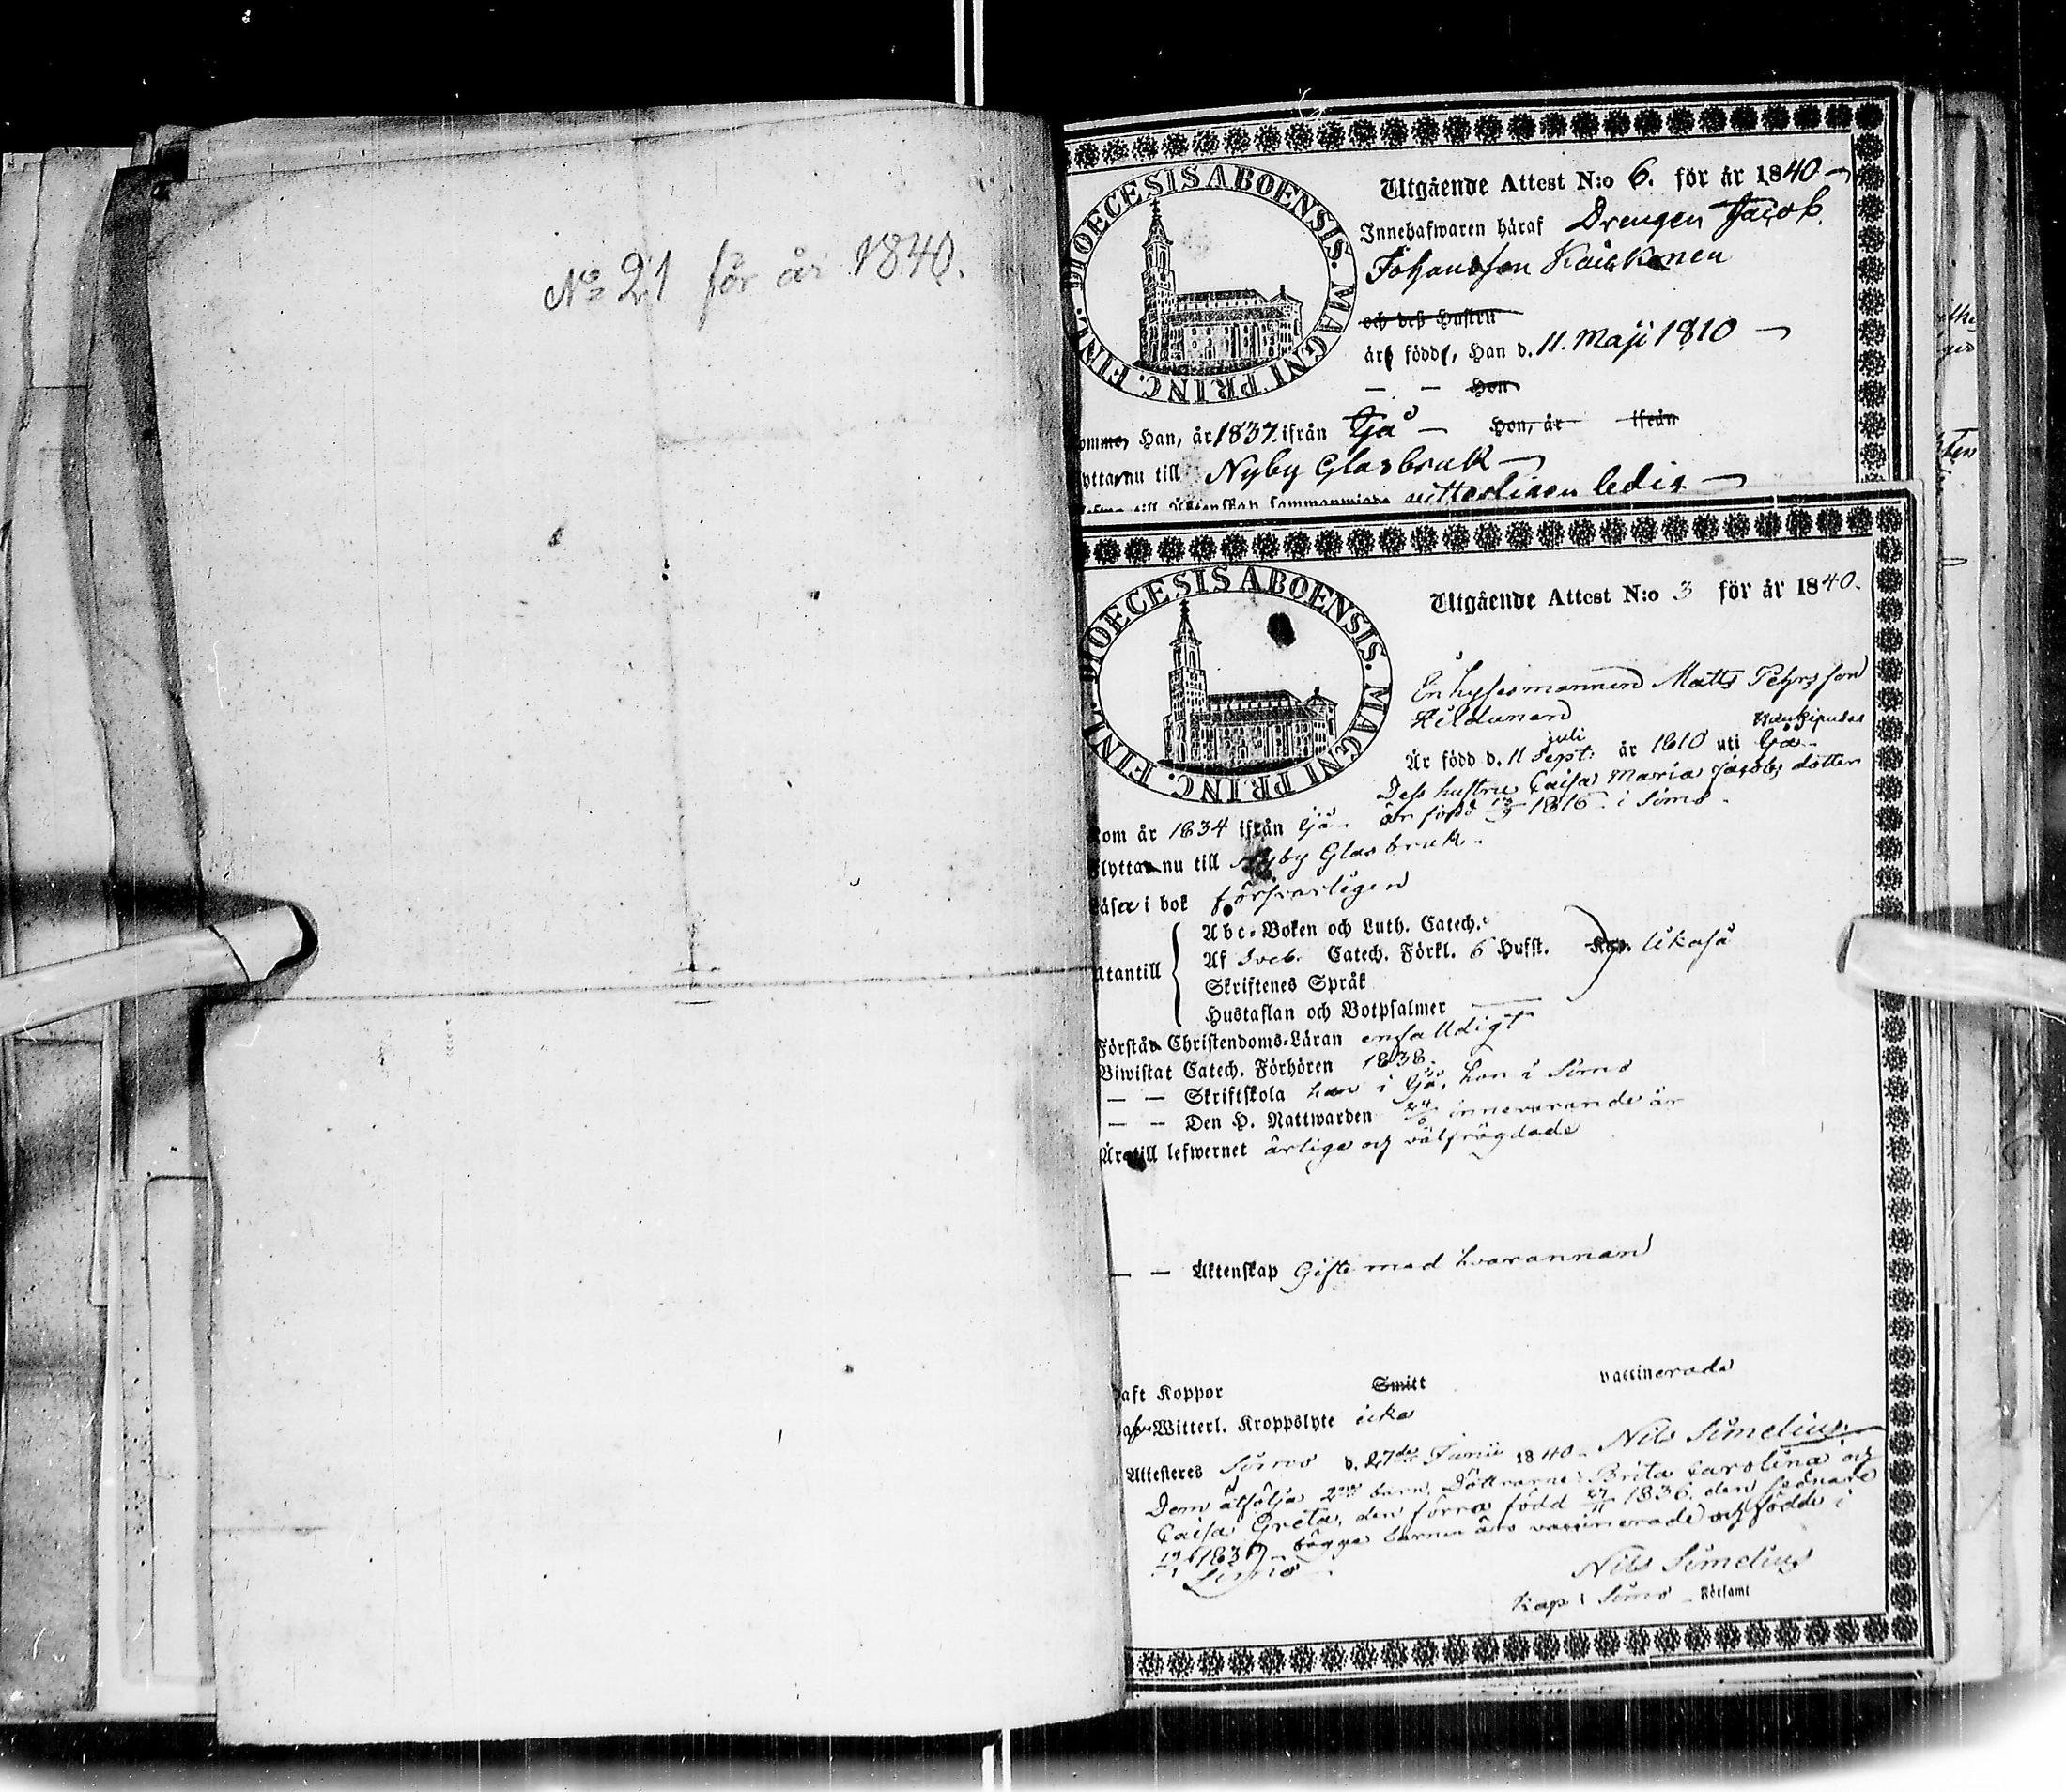 No 21 för år 1840.
DIOECESIS ABOENSIS. MAGNI PRINC. FINL.
Utgående Attest N:o 6. för år 1840
Innehafwaren häraf Drengen Jacob
Johansson
och deß Hustru
äro födde, Han d. 11. Maji 1810
— — Hon
Han, år 1837. ifrån Ijå — Hon, år ifrån
nu till Nyby Glasbruk
ledig
DIOECESIS ABOENSIS. MAGNI PRINC. FINL.
Utgående Attest N:o 3 för år 1840.
Inhysesmannen Matts Pehrsson
juli
Är född d. 11 Sept: år 1810 uti Ijå
Dess hustru Caisa Maria Jacobs dotter
är född 1816 i Simo
kom år 1834 ifrån Ijå
Flytta nu till Nyby Glasbruk
Läsa i bok försvarligen
Abc-Boken och Luth. Catech.
Af Sveb. Catech. Förkl. 6 Hufst. lika så
Utantill
Skriftenes Språk
Hustaflan och Botpsalmer
Förstå Christendoms-Läran enfalldigt
Biwistat Catech. Förhören 1838.
— — Skriftskola han i Ijå, hon i Simo
— — Den H. Nattwarden innevarande år
Äro till lefwernet ärliga och välfrägdade
— — Äktenskap Gifte med hvarannan
haft Koppor Smitt vaccinerade
Witterl. Kroppslyte icke
Attesteres Simo d. 27de Junii 1840 Nils Simelius
Dem åtfölja 2ne barn, Döttrarne: Brita Carolina och
Caisa Greta, den förra född 27/11 1836. den sednare
bägge barnen äro vaccinerade och födde i
Simo
Nils Simelius
Kap i Simo Församl